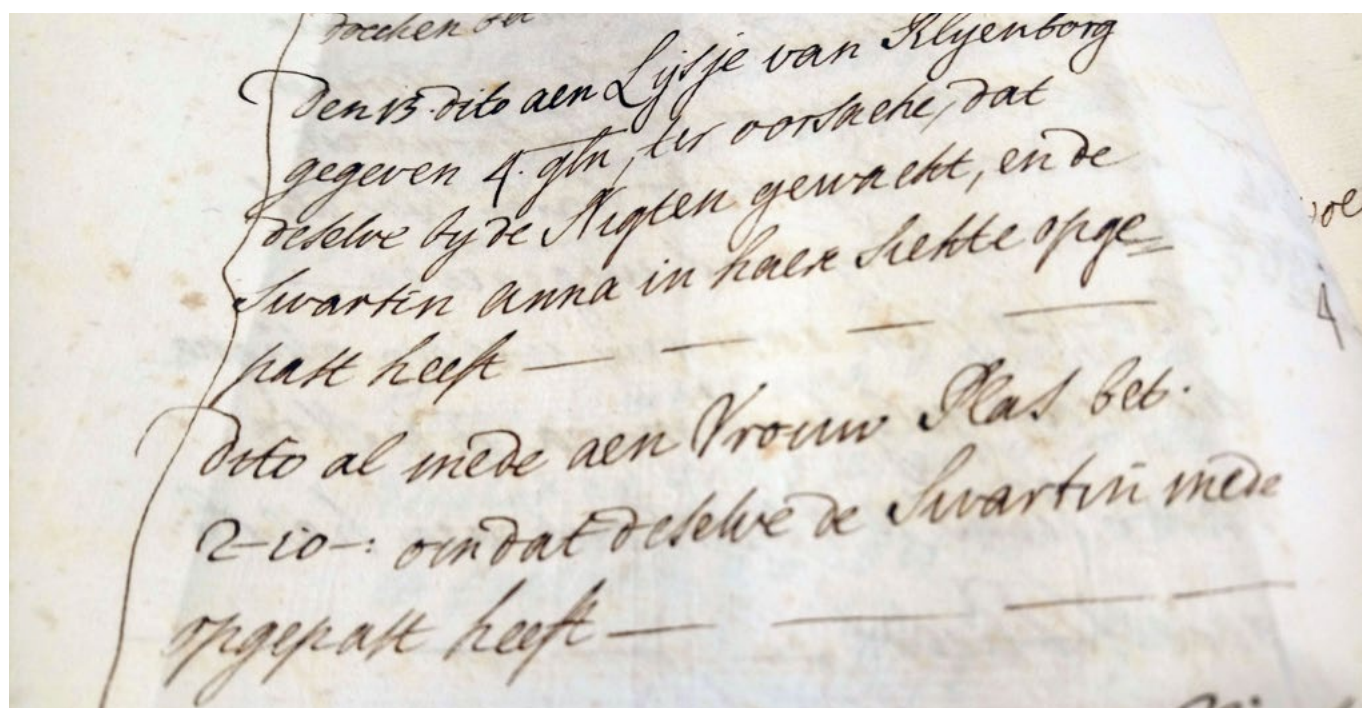 den 13 dito aen Lijsje van Klyenborg
gegeven 4. gln, ter oorsache, dat
deselve by de Nigten gewacht, en de
Swartin Anna in haer siekte opge=
past heeft — — — —
4
dito al mede aen Vrouw Plas bet.
2-10-: omdat deselve de Swartin mede
opgepast heeft — — — —